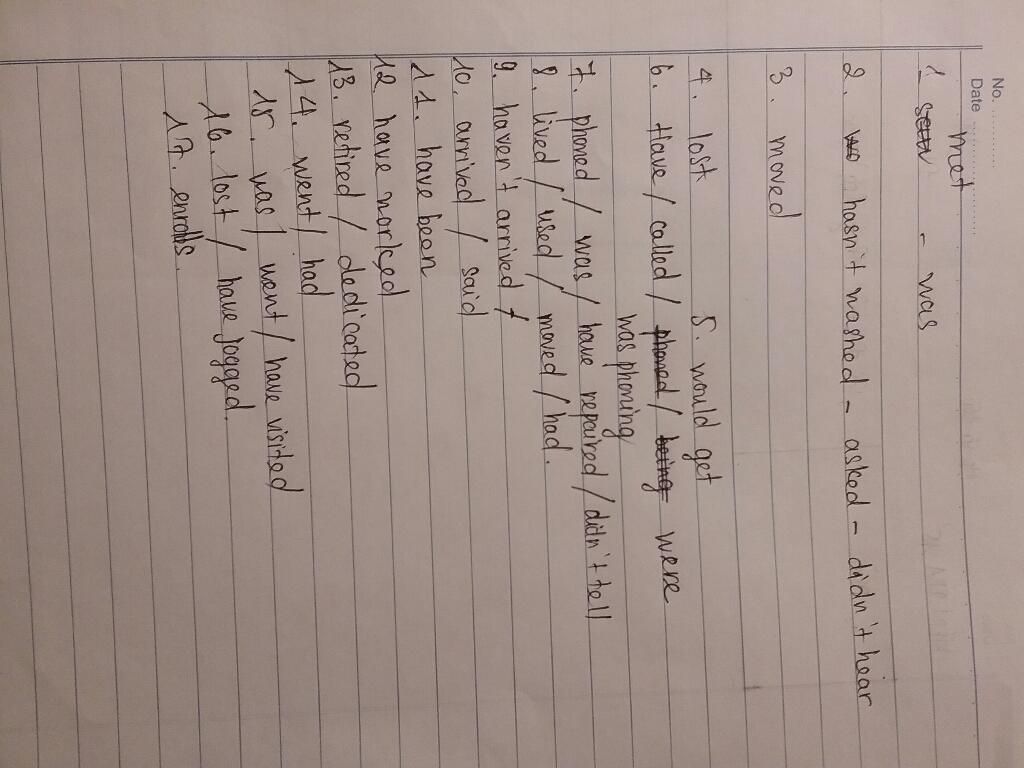 No.
Date
met
1. seen - was
2. hasn't washed - asked - didn't hear
3. moved
4. lost 5. would get
6. Have / called / phoned / being were
was phoning
7. phoned / was / have repaired / didn't tell
8. lived / used / moved / had.
9. haven't arrived /
10. arrived / said
11. have been
12 have worked
13. retired / dedicated
14. went / had
15. was / went / have visited
16. lost / have jogged.
17. enrolls.